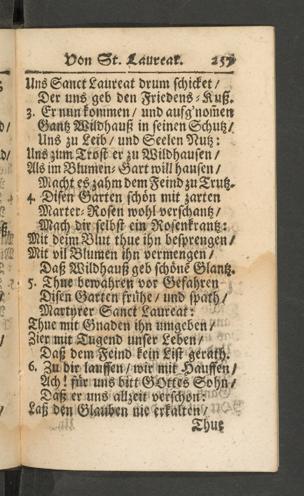 Von St. Laureat. 257
Uns Sanct Laureat drum schicket /
Der uns geb den Friedens-Kuß.
3. Er nun kommen / und aufg'nomen
Gantz Wildhauß in seinen Schutz /
Uns zu Leib / und Seelen Nutz:
Uns zum Trost er zu Wildhausen /
Als im Blumen-Gart will hausen /
Macht es zahm dem Feind zu Trutz.
4. Disen Garten schön mit zarten
Marter-Rosen wohl verschantz /
Mach dir selbst ein Rosenkrantz:
Mit deim Blut thue ihn besprengen /
Mit vil Blumen ihn vermengen /
Daß Wildhauß geb schöne Glantz.
5. Thue bewahren vor Gefahren
Disen Garten frühe / und spath /
Martyrer Sanct Laureat:
Thue mit Gnaden ihn umgeben /
Zier mit Tugend unser Leben /
Daß dem Feind kein List gerath.
6. Zu dir lauffen / wir mit Hauffen /
Ach! für uns bitt GOttes Sohn /
Daß er uns allzeit verschon:
Laß den Glauben nie erkalten /
Thue